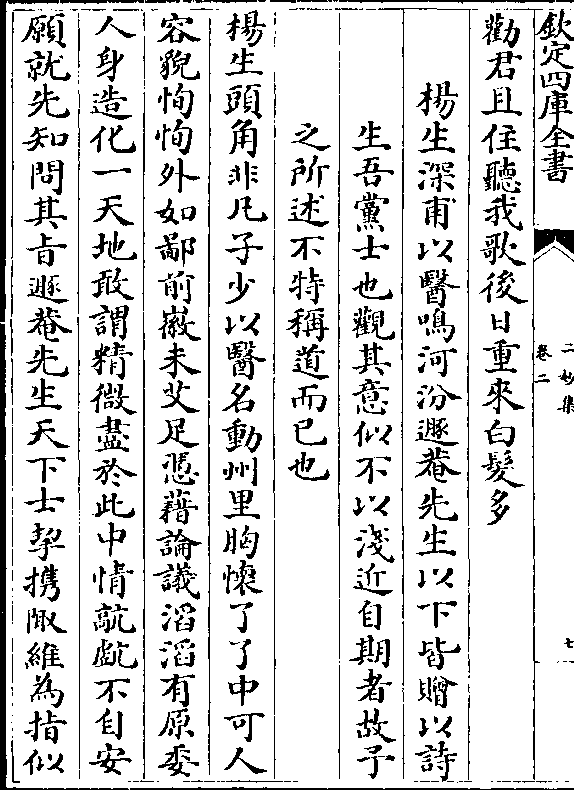 欽定四庫全書
二妙集
卷二
七
勸君且住聽我歌後日重來白髮多
楊生深甫以醫鳴河汾遯菴先生以下皆贈以詩
生吾黨士也觀其意似不以淺近自期者故予
之所述不特稱道而已也
楊生頭角非凡子少以醫名動州里胸懷了了中可人
容貌恂恂外如鄙前徽未艾足憑藉論議滔滔有原委
人身造化一天地敢謂精微盡於此中情虩虩不自安
願就先知問其旨遯菴先生天下士挈攜陬維為指似